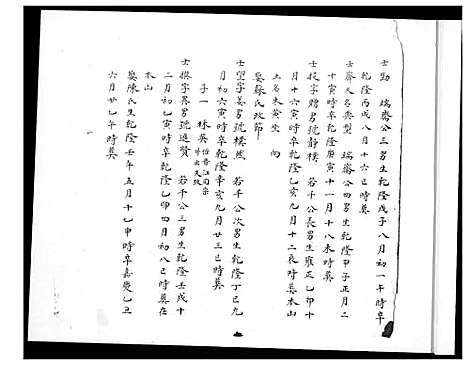 士勁 瑞齋公三男生乾隆戊子八月初一午時卒
乾隆丙戌八月十六巳時葬
士齋又名典型 瑞齋公四男生乾隆甲子正月二
十寅時卒乾隆庚寅十一月十八未時葬
士提字贈男號静樸 若千公長男生雍正乙卯十
月十六寅時卒乾隆乙亥九月十二辰時葬本山
土名朱黄坐 向
娶蘇氏改節
士望字姜男號樸然 若千公次男生乾隆丁巳九
月初六寅時卒乾隆辛亥九月廿三巳時葬
子一 林英
士撰字界男號進贊 若千公三男生乾隆壬戌十
二月初乙寅時卒乾隆乙卯四月初八巳時葬在
本山
娶陳氏生乾隆壬午五月十乙申時卒嘉慶乙丑
六月廿乙午時葬